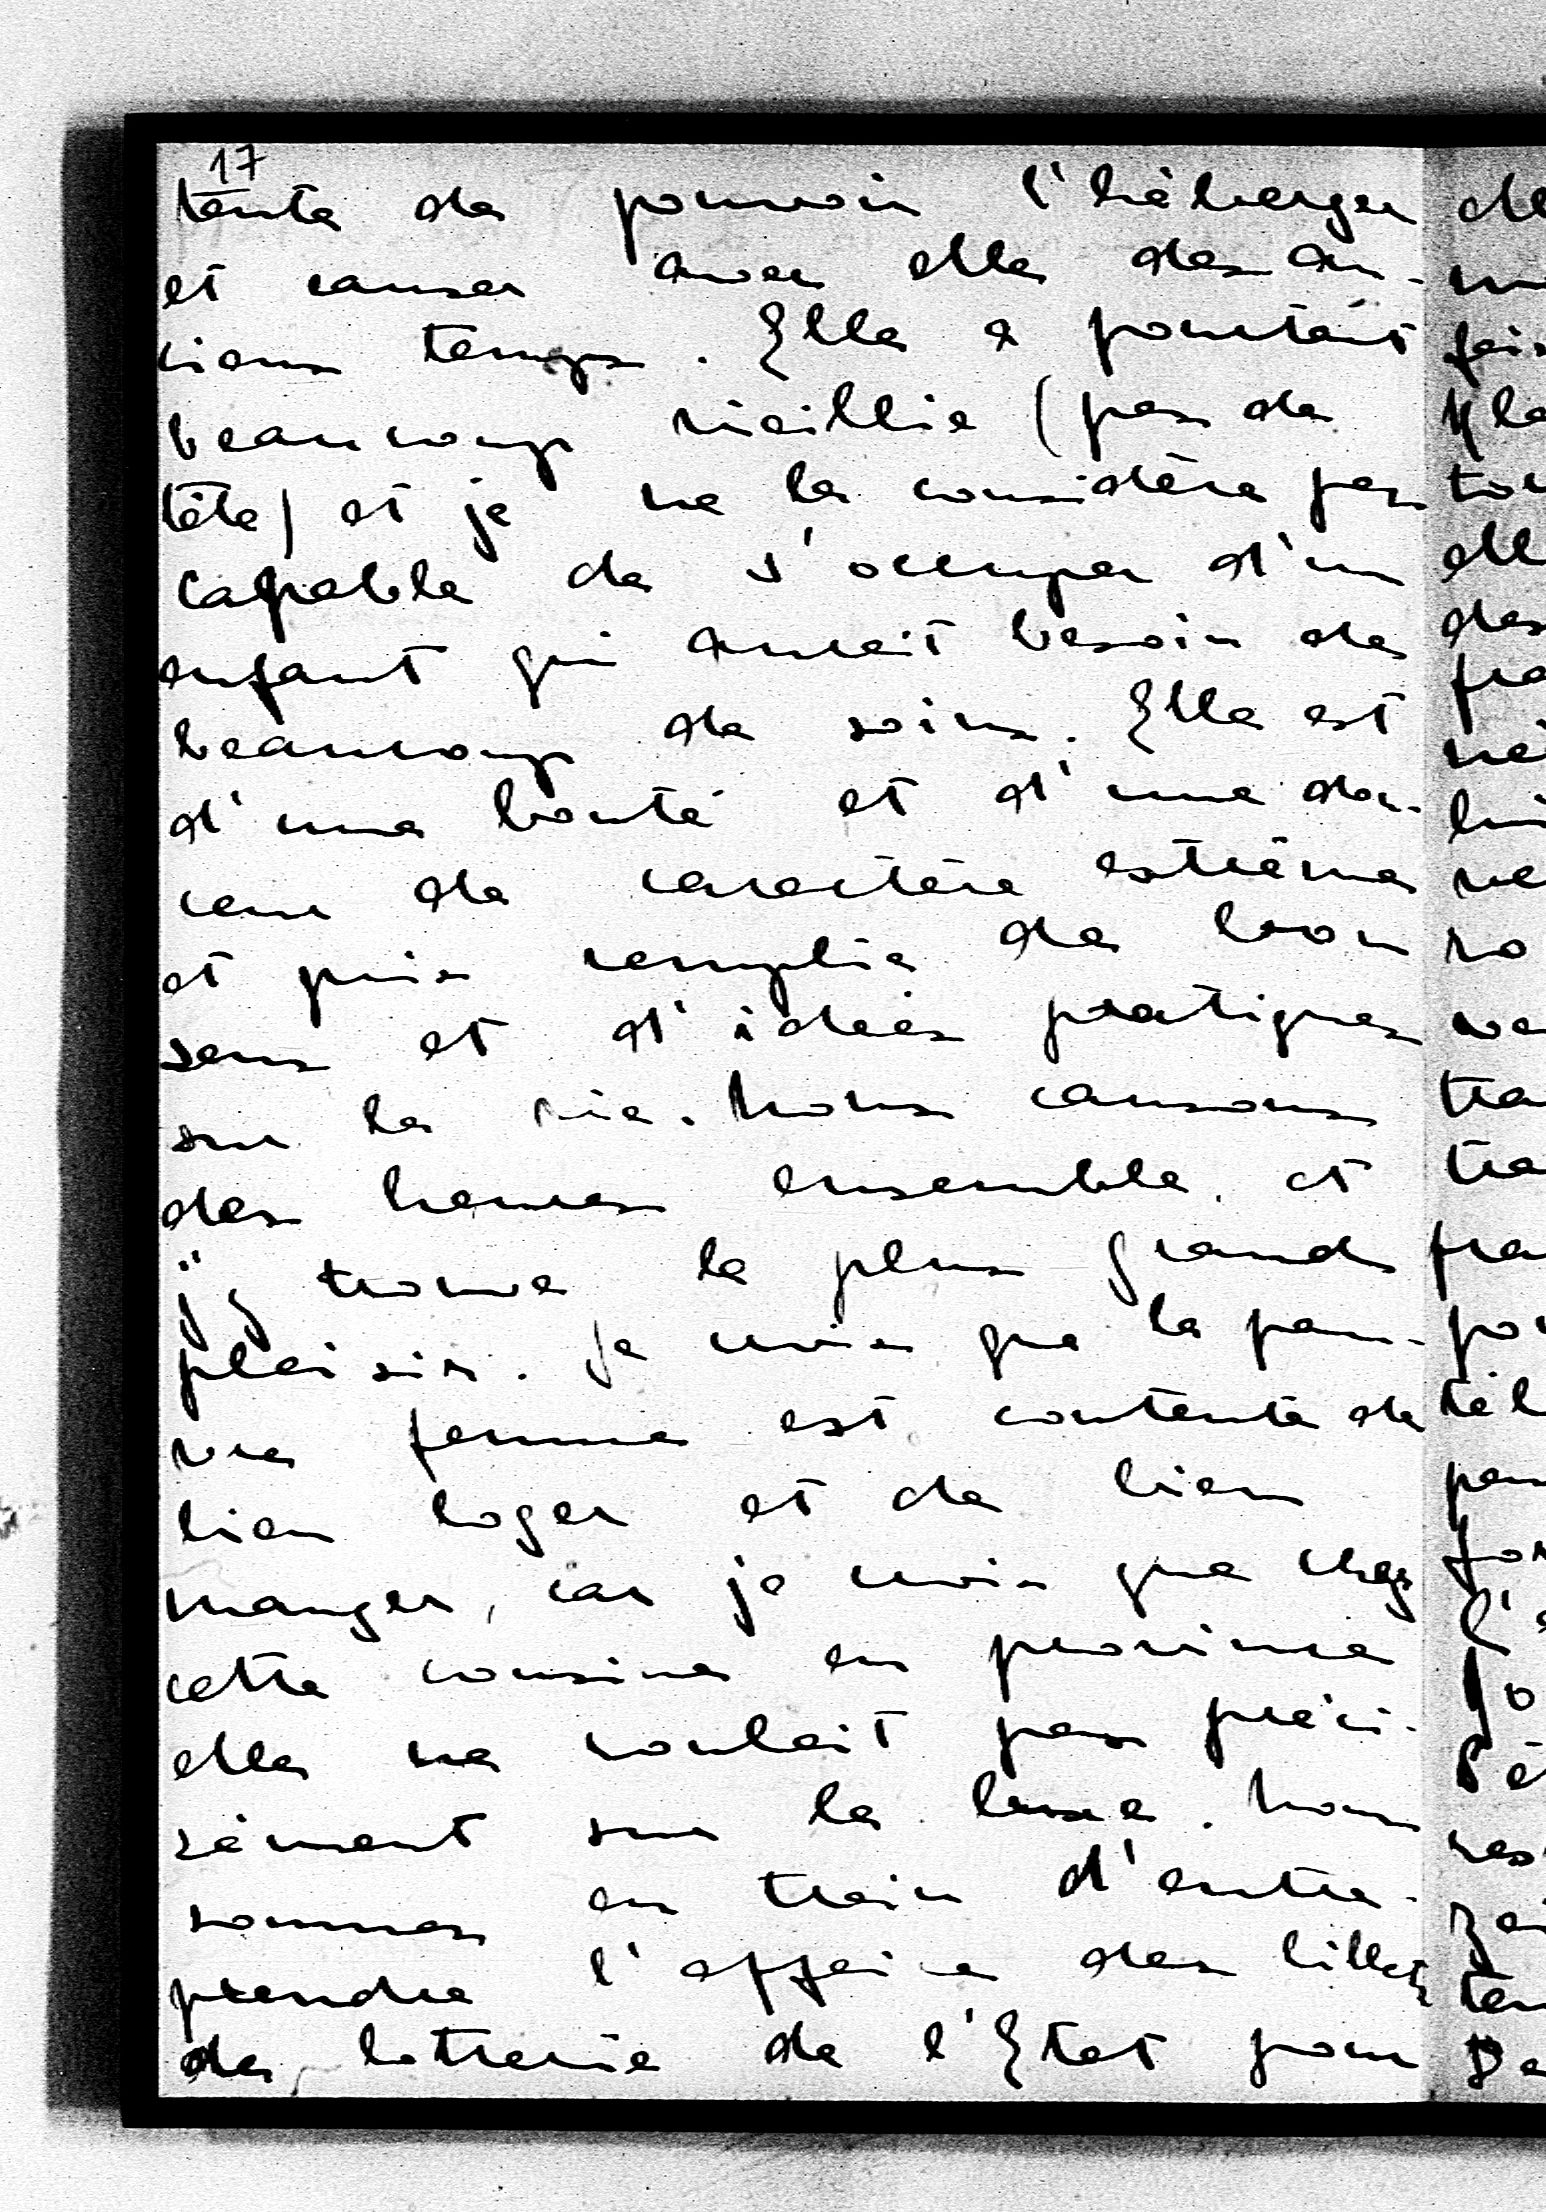 17
tente de pouvoir l'héberger
et causer avec elle des an-
ciens temps. Elle a pourtant
beaucoup vieillie (pas de
tête) et je ne la considère pas
capable de s'occuper d'un
enfant qui aurait besoin de
beaucoup de soins. Elle est
d'une bonté et d'une dou-
ceur de caractère extrême
et puis remplie de bon
sens et d'idées pratiques
sur la vie. Nous causons
des heures ensemble et
j'y trouve le plus grand
plaisir. Je crois que la pau-
vre femme est contente de
bien loger et de bien
manger, car je crois que chez
cette cousine en province
elle ne roulait pas préci-
sément sur le luxe. Nous
sommes en train d'entre-
prendre l'affaire des billets
de lotterie de l'Etat pour